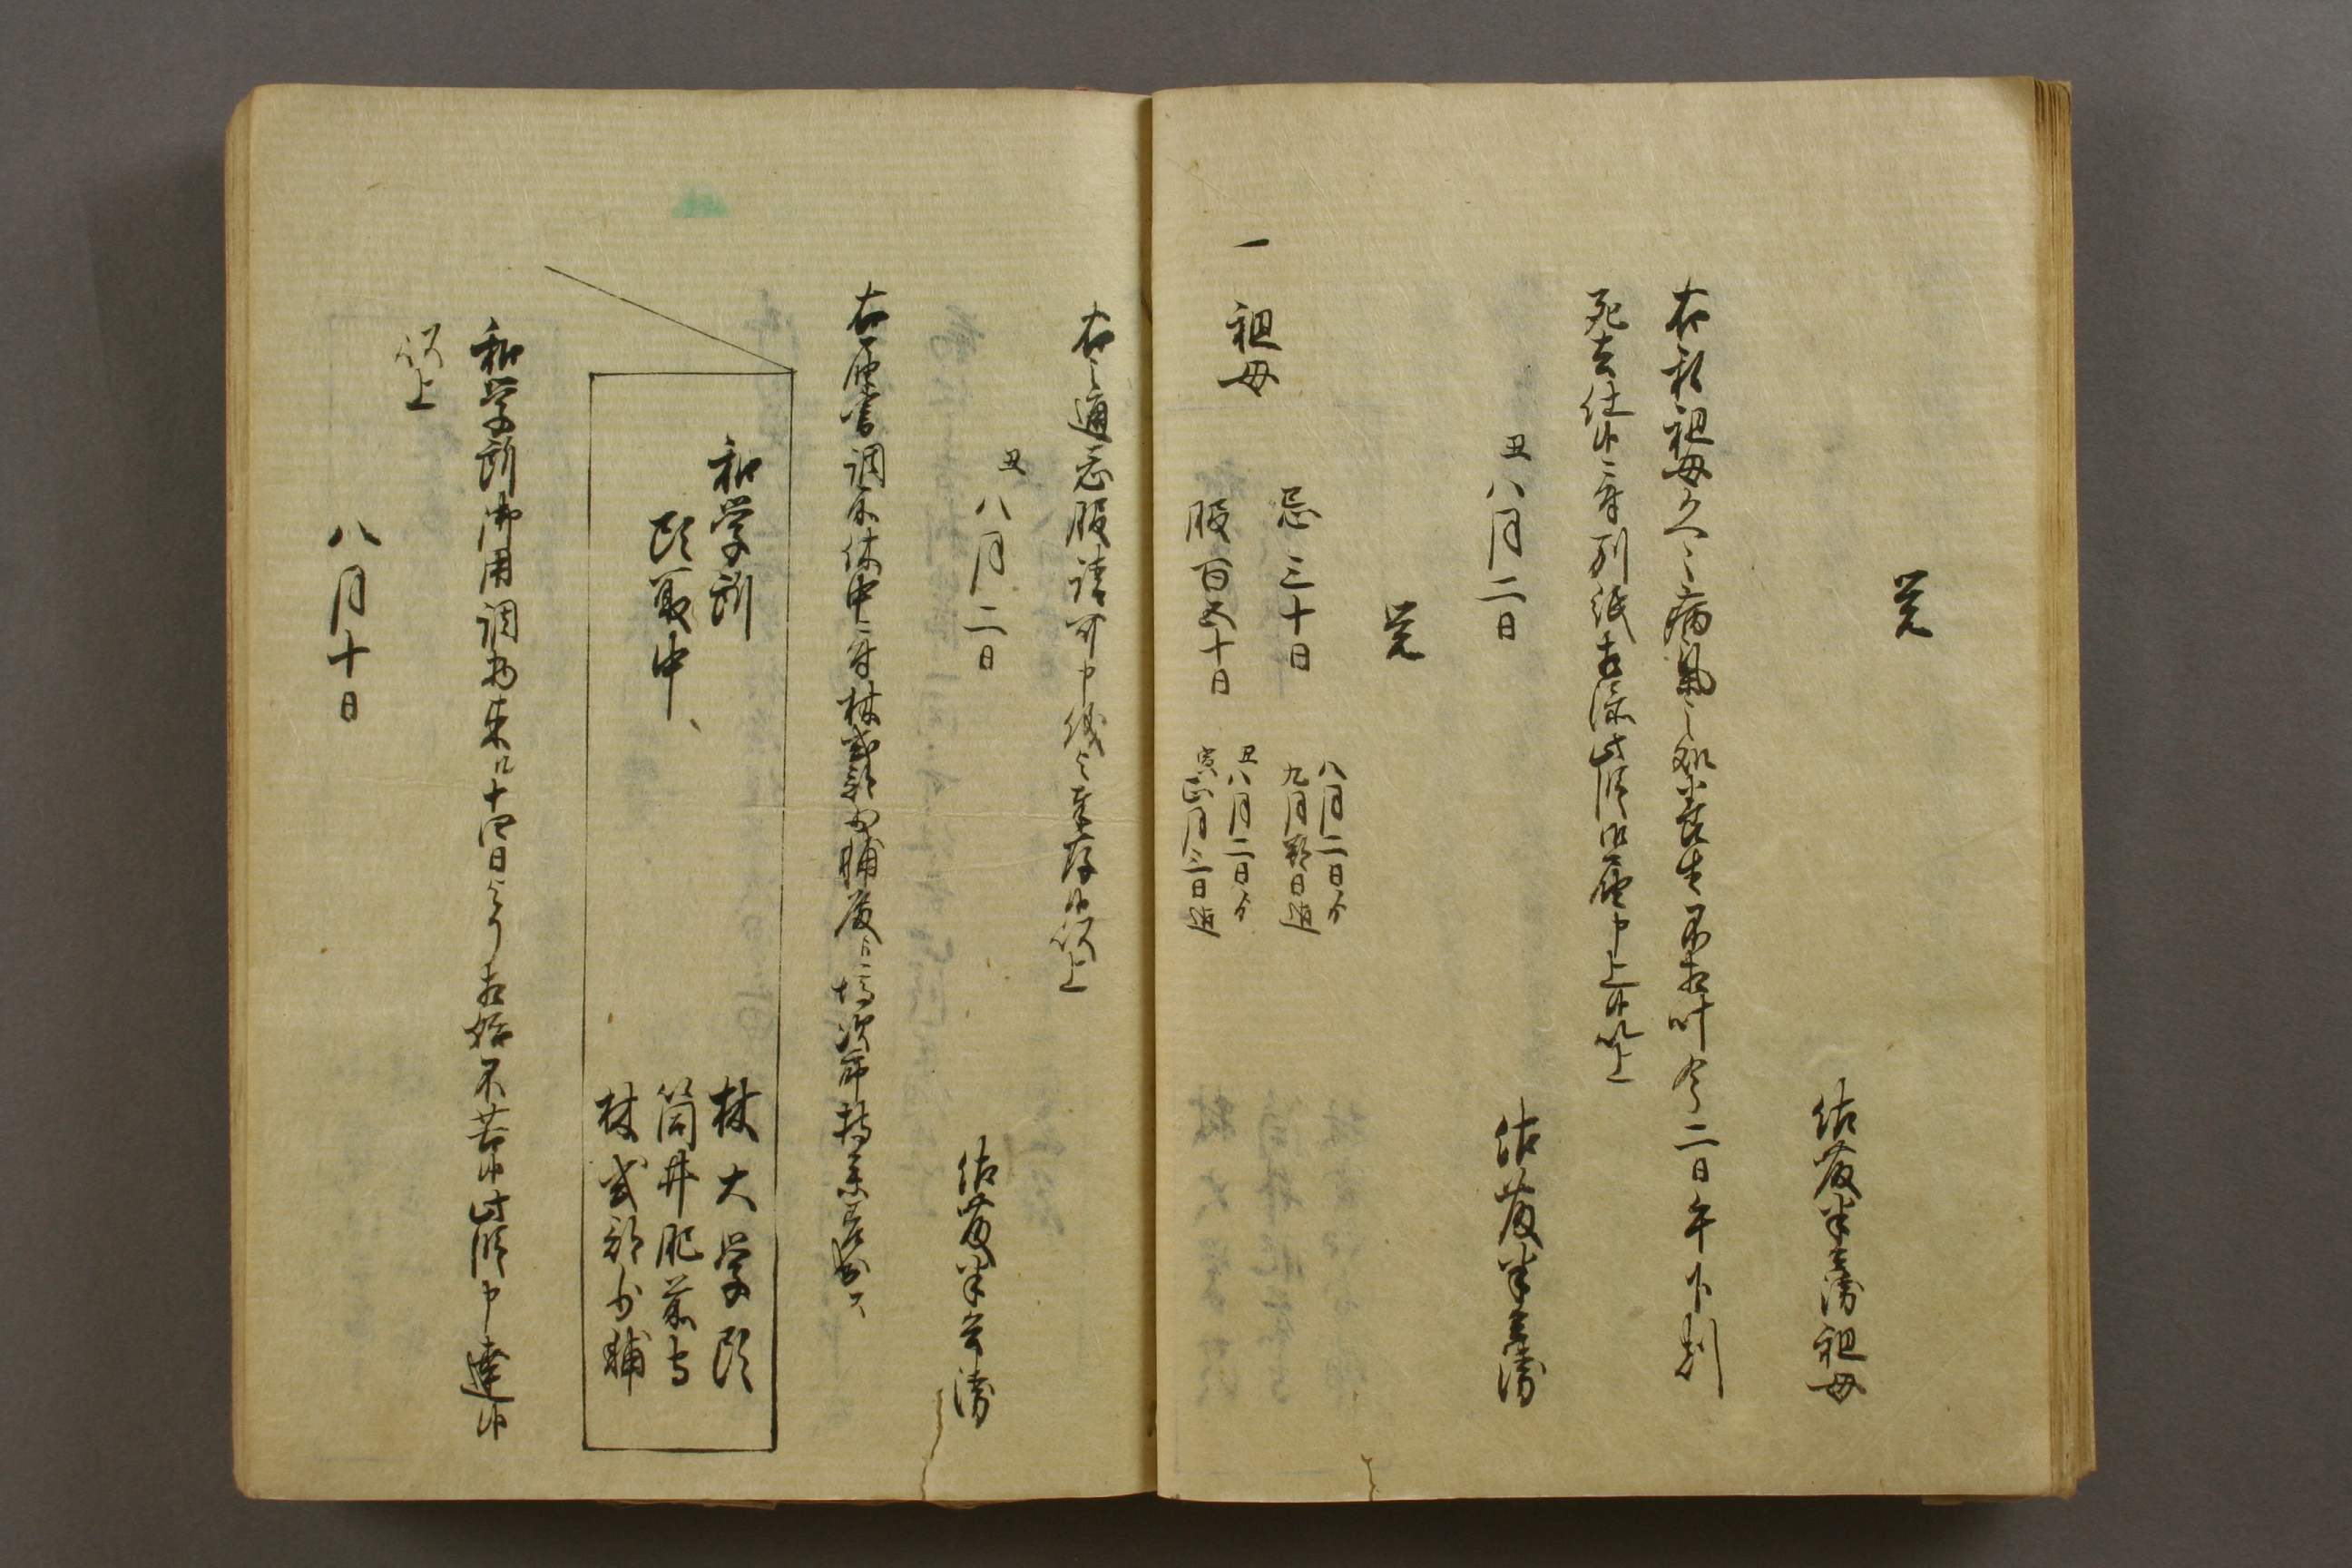 覚
佐藤半兵衛祖母
右私祖母久々病気之処養生不相叶今二日午下刻
死去仕候ニ付別紙相添此段御届申上候以上
丑八月二日
佐藤半兵衛
覚
忌三十日
八月二日より
九月朔日迄
一 祖母
服百五十日
丑八月二日より
寅正月二日迄
右之通忌服請可申儀と奉存候以上
丑八月二日
佐藤半兵衛
右届書調所休中ニ付林式部少輔殿江塙次郎持参差出ス
和学所
頭取中
林大学頭
筒井肥前守
林式部少輔
和学所御用調物来ル十四日より相始不苦候此段申達候
以上
八月十日